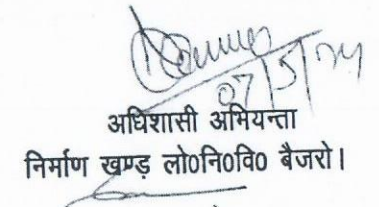 07/5/24
अधिशासी अभियन्ता
निर्माण खण्ड लो०नि०वि० बैजरो।